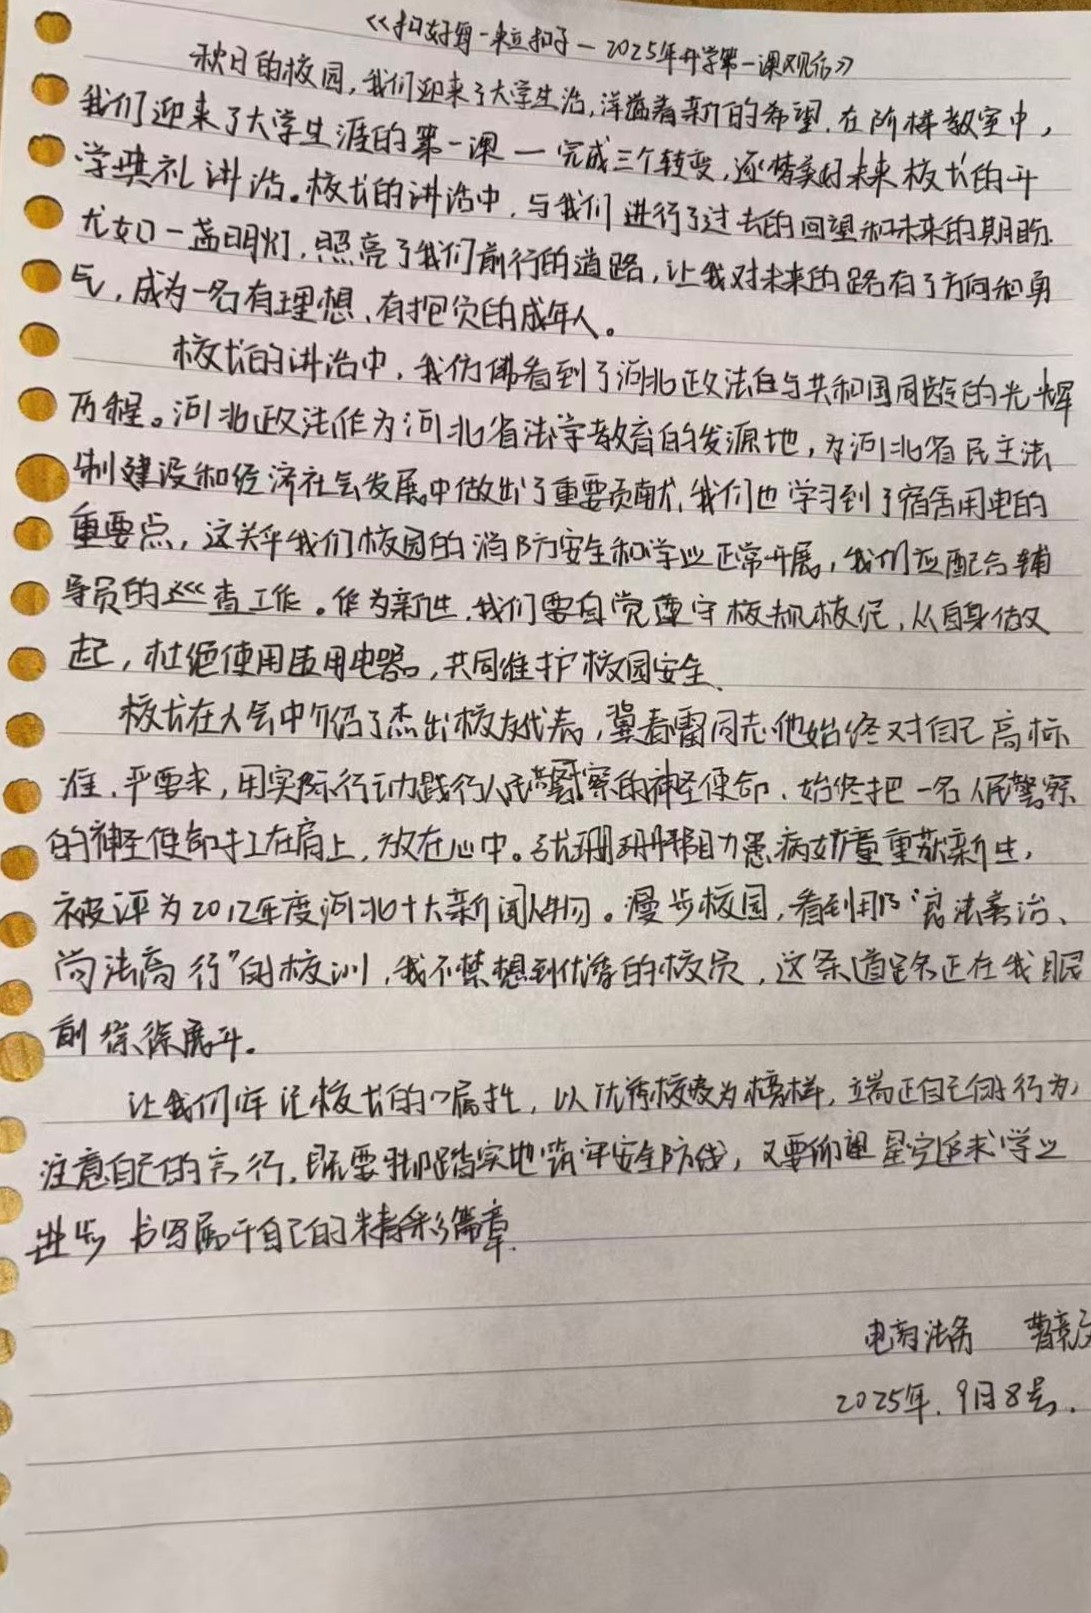 《扣好每一粒扣子—2025年开学第一课观后》
秋日的校园,我们迎来了大学生活,洋溢着新的希望.在阶梯教室中,
我们迎来了大学生涯的第一课—完成三个转变,逐梦美好未来校长的开
学典礼讲话。校长的讲话中,与我们进行了过去的回望和未来的期盼.
尤如一盏明灯,照亮了我们前行的道路,让我对未来的路有了方向和勇
气,成为一名有理想、有抱负的成年人。
校长的讲话中,我仿佛看到了河北政法自与共和国同龄的光辉
历程。河北政法作为河北省法学教育的发源地,为河北省民主法
制建设和经济社会发展中做出了重要贡献,我们也学习到了宿舍用电的
重要点,这关乎我们校园的消防安全和学业正常开展,我们应配合辅
导员的巡查工作。作为新生,我们要自觉遵守校规校纪,从自身做
起,杜绝使用违用电器,共同维护校园安全.
校长在大会中介绍了杰出校友代表,冀春雷同志他始终对自己高标
准、严要求,用实际行动践行人民警察的神圣使命、始终把一名人民警察
的神圣使命扛在肩上,放在心中。张珊珊帮助力患病女童重获新生,
被评为2012年度河北十大新闻人物。漫步校园,看到那"厚法善治、
尚法高行"的校训,我不禁想到优秀的校员,这条道路正在我眼
前徐徐展开。
让我们牢记校长的属性,以优秀校友为榜样,端正自己的行为,
注意自己的言行,既要脚踏实地筑牢安全防线,又要仰望星空追求学业
进步,书写属于自己的精彩篇章.
电商法务
2025年.9月8号.